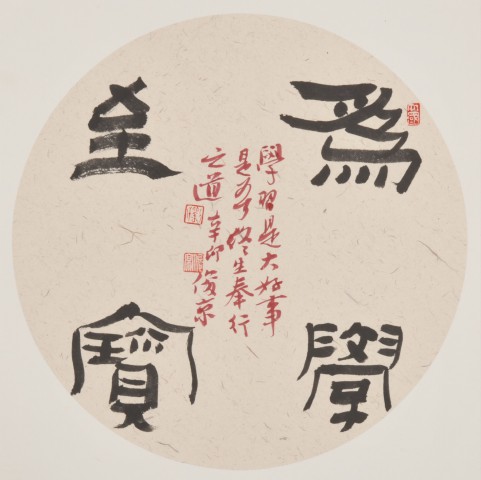 爲學
至寶
學習是大好事
是 生奉行
之道 辛卯 俊京